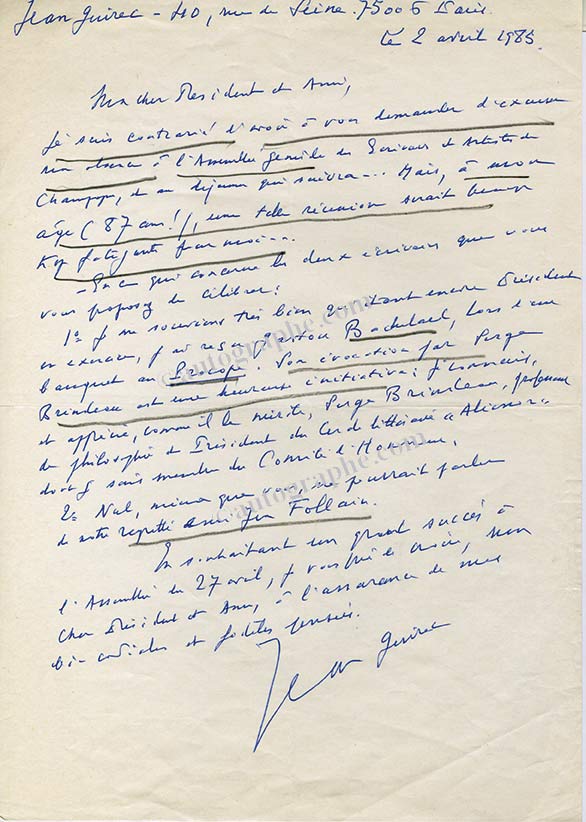 Jean Guirec - 40, rue de Seine. 75006 Paris.
Le 2 avril 1985.
Mon cher Président et Ami,
Je suis contrarié d'avoir à vous demander d'excuser
mon absence à l'Assemblée générale des Ecrivains et Artistes de
Champagne, et au déjeuner qui suivra... Mais, à mon
âge (87 ans!), une telle réunion serait beaucoup
trop fatigante pour moi...
- En ce qui concerne les deux écrivains que vous
vous proposez de célébrer:
1º Je me souviens très bien qu'étant encore Président
en exercice, j'ai reçu Gaston Bachelard, lors d'un
banquet au Procope. Son évocation par Serge
Brindeau est une heureuse initiative; je connais,
et apprécie, comme il le mérite, Serge Brindeau, professeur
de philosophie et Président du Cercle littéraire "Aliénor"
dont je suis membre du Comité d'Honneur.
2º Nul, mieux que vous, ne pourrait parler
de notre regretté ami Jean Follain.
En souhaitant un grand succès à
l'Assemblée du 27 avril, je vous prie de croire, mon
cher Président et Ami, à l'assurance de mes
bien cordiales et fidèles pensées.
Jean Guirec
©autographe.com
©autographe.com